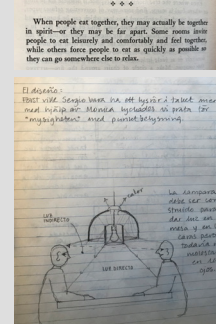 When people eat together, they may actually be together
in spirit—or they may be far apart. Some rooms invite
people to eat leisurely and comfortably and feel together,
while others force people to eat as quickly as possible so
they can go somewhere else to relax.
El diseño:
Först ville Sergio bara ha ett ljusrör i taket men
med hjälp av Monica lyckades vi prata för
"mysigheten" med punktbelysning.
calor
La lámpara
debe ser
para
dar luz en
mesa y en
caras pero
todavía
en
ojos.
LUZ
INDIRECTA
LUZ DIRECTA